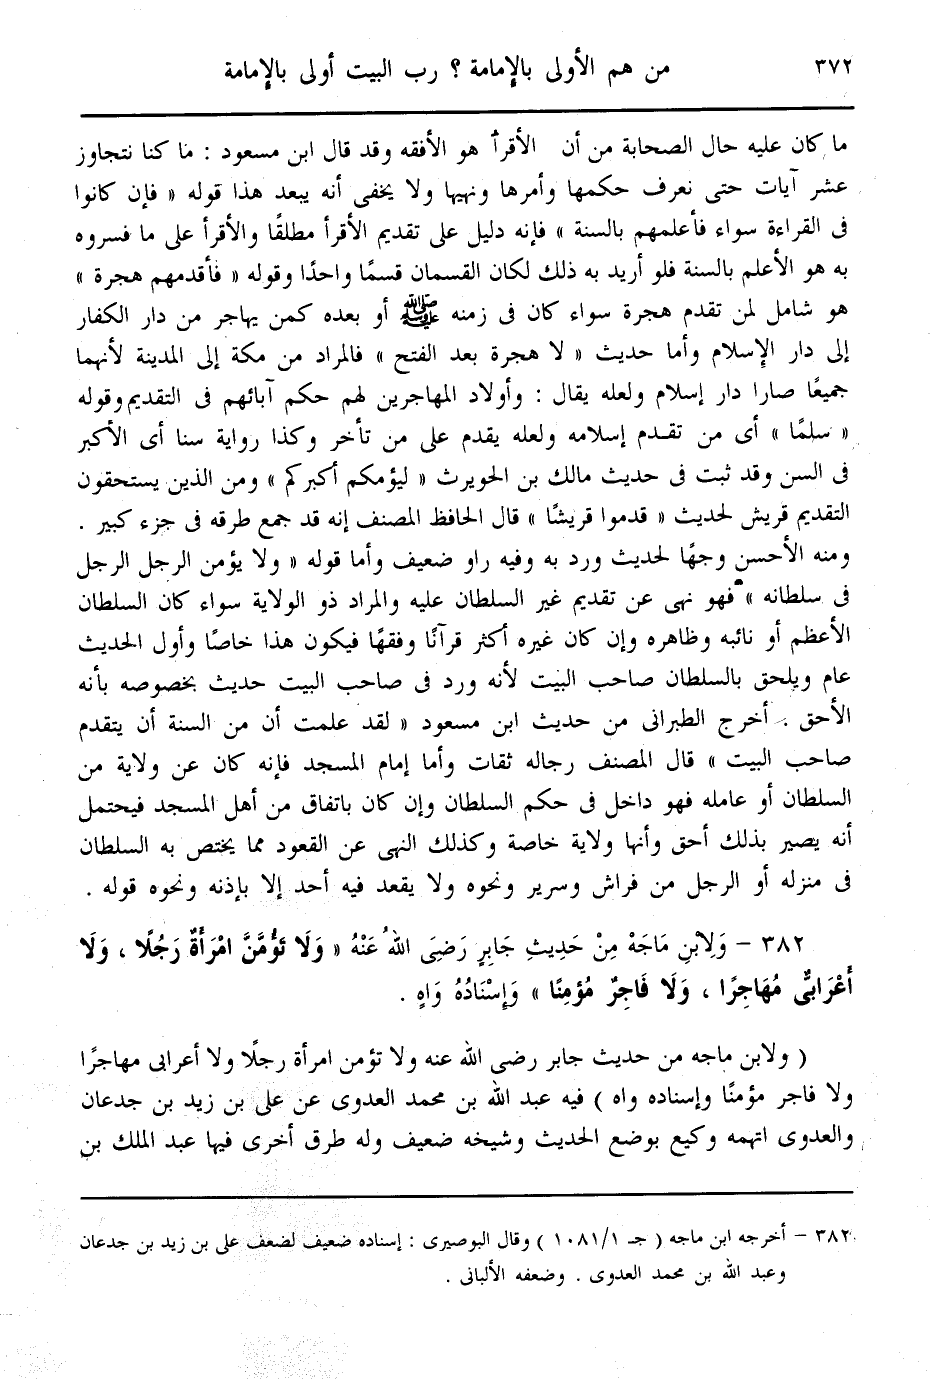 ٣٧٢
من هم الأولى بالإمامة ؟ رب البيت أولى بالإمامة
ما كان عليه حال الصحابة من أن الأقرأ هو الأفقه وقد قال ابن مسعود : ما كنا نتجاوز
عشر آيات حتى نعرف حكمها وأمرها ونهيها ولا يخفى أنه يبعد هذا قوله « فإن كانوا
فى القراءة سواء فأعلمهم بالسنة » فإنه دليل على تقديم الأقرأ مطلقًا والأقرأ على ما فسروه
به هو الأعلم بالسنة فلو أريد به ذلك لكان القسمان قسمًا واحدًا وقوله « فأقدمهم هجرة »
هو شامل لمن تقدم هجرة سواء كان فى زمنه ﷺ أو بعده كمن يهاجر من دار الكفار
إلى دار الإسلام وأما حديث « لا هجرة بعد الفتح » فالمراد من مكة إلى المدينة لأنهما
جميعًا صارا دار إسلام ولعله يقال : وأولاد المهاجرين لهم حكم آبائهم فى التقديم وقوله
« سلمًا » أى من تقدم إسلامه ولعله يقدم على من تأخر وكذا رواية سنا أى الأكبر
فى السن وقد ثبت فى حديث مالك بن الحويرث « ليؤمكم أكبركم » ومن الذين يستحقون
التقديم قريش لحديث « قدموا قريشًا » قال الحافظ المصنف إنه قد جمع طرقه فى جزء كبير .
ومنه الأحسن وجهًا لحديث ورد به وفيه راو ضعيف وأما قوله « ولا يؤمن الرجل الرجل
فى سلطانه » فهو نهى عن تقديم غير السلطان عليه والمراد ذو الولاية سواء كان السلطان
الأعظم أو نائبه وظاهره وإن كان غيره أكثر قرآنًا وفقهًا فيكون هذا خاصًا وأول الحديث
عام ويلحق بالسلطان صاحب البيت لأنه ورد فى صاحب البيت حديث بخصوصه بأنه
الأحق . أخرج الطبرانى من حديث ابن مسعود « لقد علمت أن من السنة أن يتقدم
صاحب البيت » قال المصنف رجاله ثقات وأما إمام المسجد فإنه كان عن ولاية من
السلطان أو عامله فهو داخل فى حكم السلطان وإن كان باتفاق من أهل المسجد فيحتمل
أنه يصير بذلك أحق وأنها ولاية خاصة وكذلك النهى عن القعود مما يختص به السلطان
فى منزله أو الرجل من فراش وسرير ونحوه ولا يقعد فيه أحد إلا بإذنه ونحوه قوله .
٣٨٢ – وَلِابْنِ مَاجَهْ مِنْ حَدِيثِ جَابِرٍ رَضِىَ اللهُ عَنْهُ « وَلَا تَؤُمَّنَّ امْرَأَةٌ رَجُلًا ، وَلَا
أَعْرَابِىٌّ مُهَاجِرًا ، وَلَا فَاجِرٌ مُؤْمِنًا » وَإِسْنَادُهُ وَاهٍ .
( ولابن ماجه من حديث جابر رضى الله عنه ولا تؤمن امرأة رجلًا ولا أعرابى مهاجرًا
ولا فاجر مؤمنًا وإسناده واه ) فيه عبد الله بن محمد العدوى عن على بن زيد بن جدعان
والعدوى اتهمه وكيع بوضع الحديث وشيخه ضعيف وله طرق أخرى فيها عبد الملك بن
٣٨٢ – أخرجه ابن ماجه ( جـ ١٠٨١/١ ) وقال البوصيرى : إسناده ضعيف لضعف على بن زيد بن جدعان
وعبد الله بن محمد العدوى . وضعفه الألبانى .